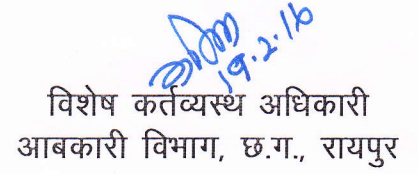 19.2.16
विशेष कर्तव्यस्थ अधिकारी
आबकारी विभाग, छ.ग., रायपुर